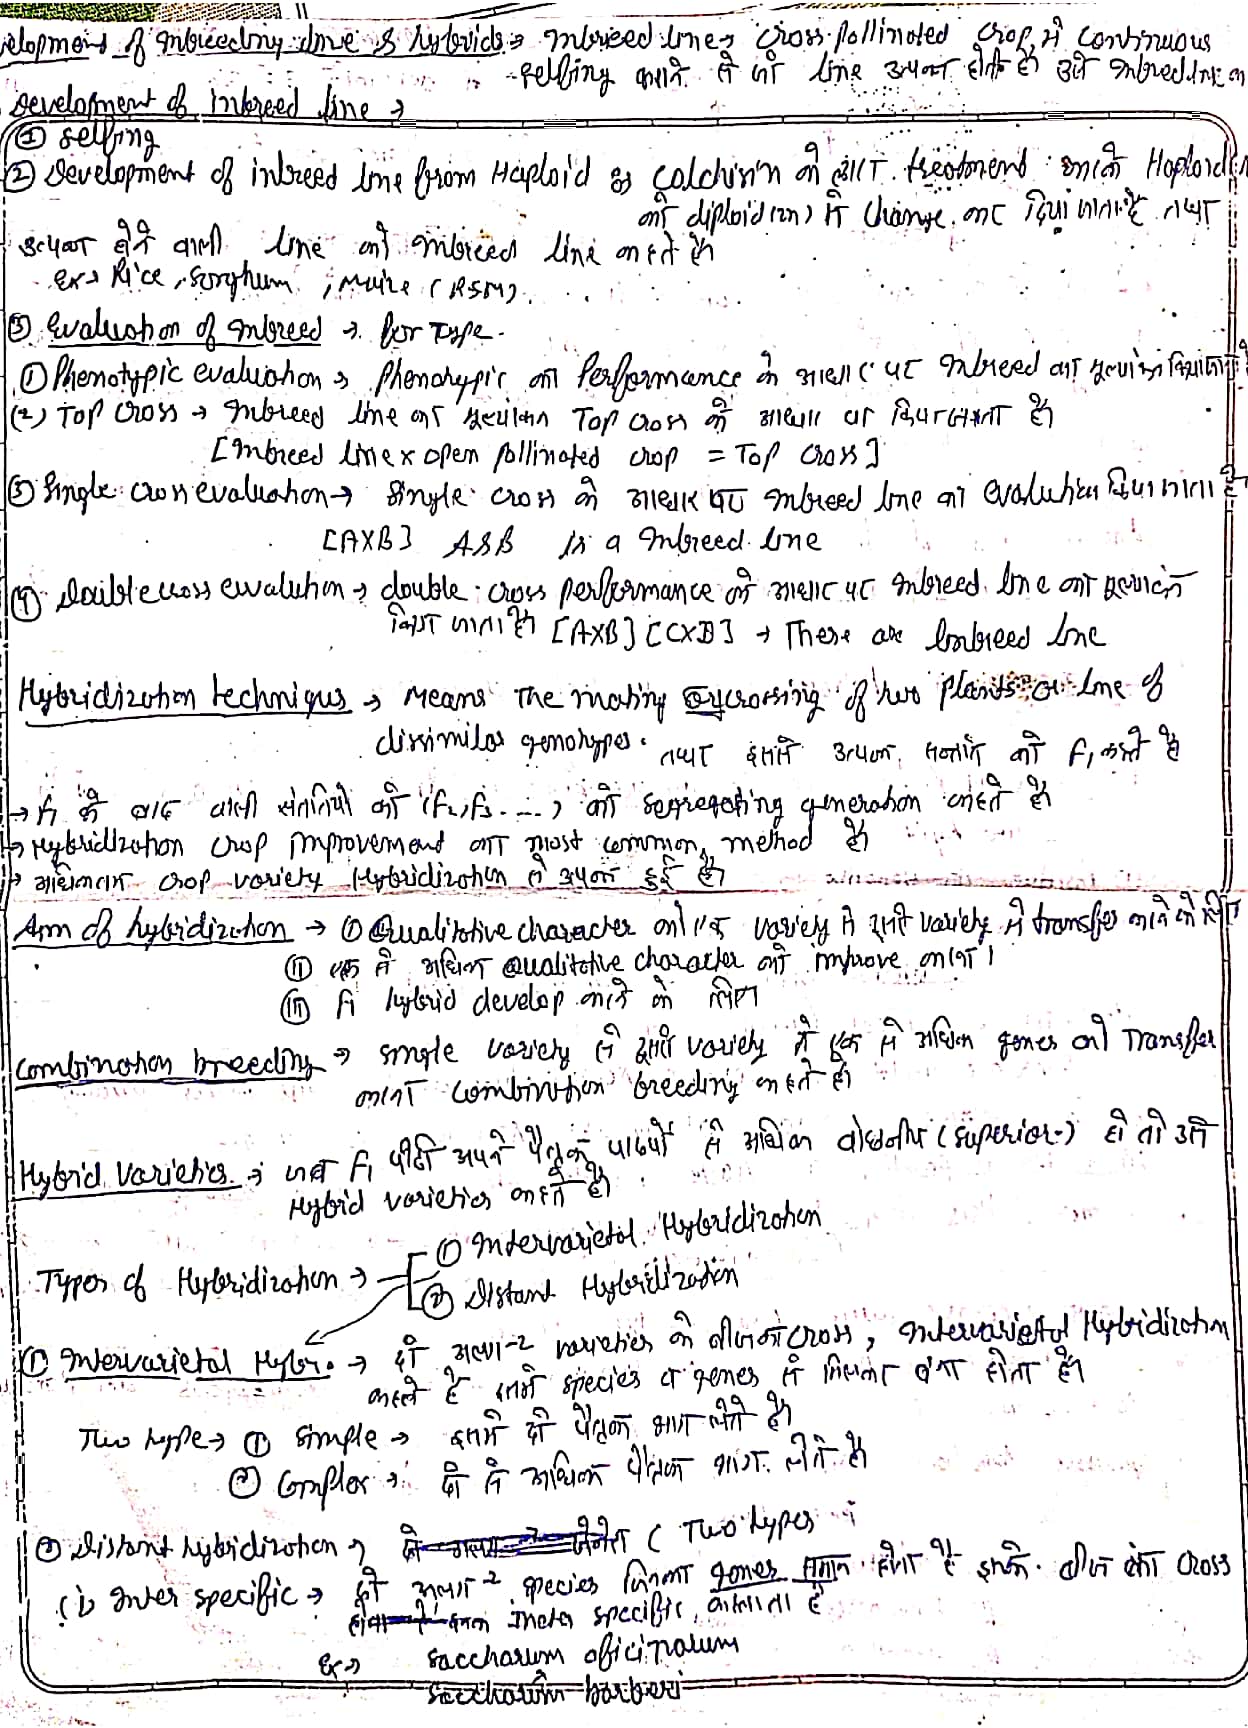 elopment of Inbreeding line & hybrids → Inbreed line → cross-pollinated crop में continuous
selfing कराने से जो line उत्पन्न होती है उसे Inbred line क
Development of Inbreed line →
① selfing
② Development of inbreed line from Haploid → Colchicin के द्वारा treatment करके Haploid(n)
को diploid(2n) में change कर दिया जाता है तथा
उत्पन्न होने वाली line को Inbreed line कहते है
Ex → Rice, Sorghum, Maize (RSM).
③ Evaluation of Inbreed → four Type -
① Phenotypic evaluation → Phenotypic का Performance के आधार पर Inbreed का मूल्यांकन किया जाता है
(2) Top Cross → Inbreed line का मूल्यांकन Top Cross के आधार पर किया जाता है
[Inbreed line x open Pollinated crop = Top Cross]
③ Single cross evaluation → Single cross के आधार पर Inbreed line का evalution किया जाता है
[AXB] A & B is a Inbreed line
④ Double cross evalution → double cross performance के आधार पर Inbreed line का मूल्यांकन
किया जाता है [AXB] [CXD] → There are Inbreed line
Hybridization techniqus → Means The mating or crossing of two plants or line of
dissimilar genotypes. तथा इससे उत्पन्न संतति को F₁ कहते है
→ F₁ के बाद वाली संततियो को (F₂, F₃ ----) को Seggregating generation कहते है
→ Hybridization crop improvement का most common method है
→ अधिकतम crop variety Hybridization से उत्पन्न हुई है
Aim of hybridization → ① Qualitative character को एक variety से दूसरी variety में transfer करने के लिए
② एक से अधिक Qualitative character को improve करना।
③ F₁ hybrid develop करने के लिए
Combination breeding → single variety से दूसरी variety में एक से अधिक genes को Transfer
करना combination breeding कहते है
Hybrid varieties → जब F₁ पीढी अपने पैतृक पादपों से अधिक वांछनीय (superior) हो तो उसे
Hybrid varieties कहते है
Types of Hybridization →
① Intervarietal Hybridization
② Distant Hybridization
① Intervarietal Hybr. → दो अलग-2 varieties के बीज का cross, Intervarietal Hybridization
कहते है इसमें species व genes में मिलकर बना होता है।
Two type → ① Simple → इसमें दो पैतृक भाग लेते है
② Complex → दो से अधिक पैतृक भाग लेते है
② Distant hybridization → (Two types
(i) Inter specific → दो अलग-2 species जिनका genes समान होता है इनके बीज का cross
Inter specific कहलाता है
Ex → Saccharum officinarum
Saccharum barberi